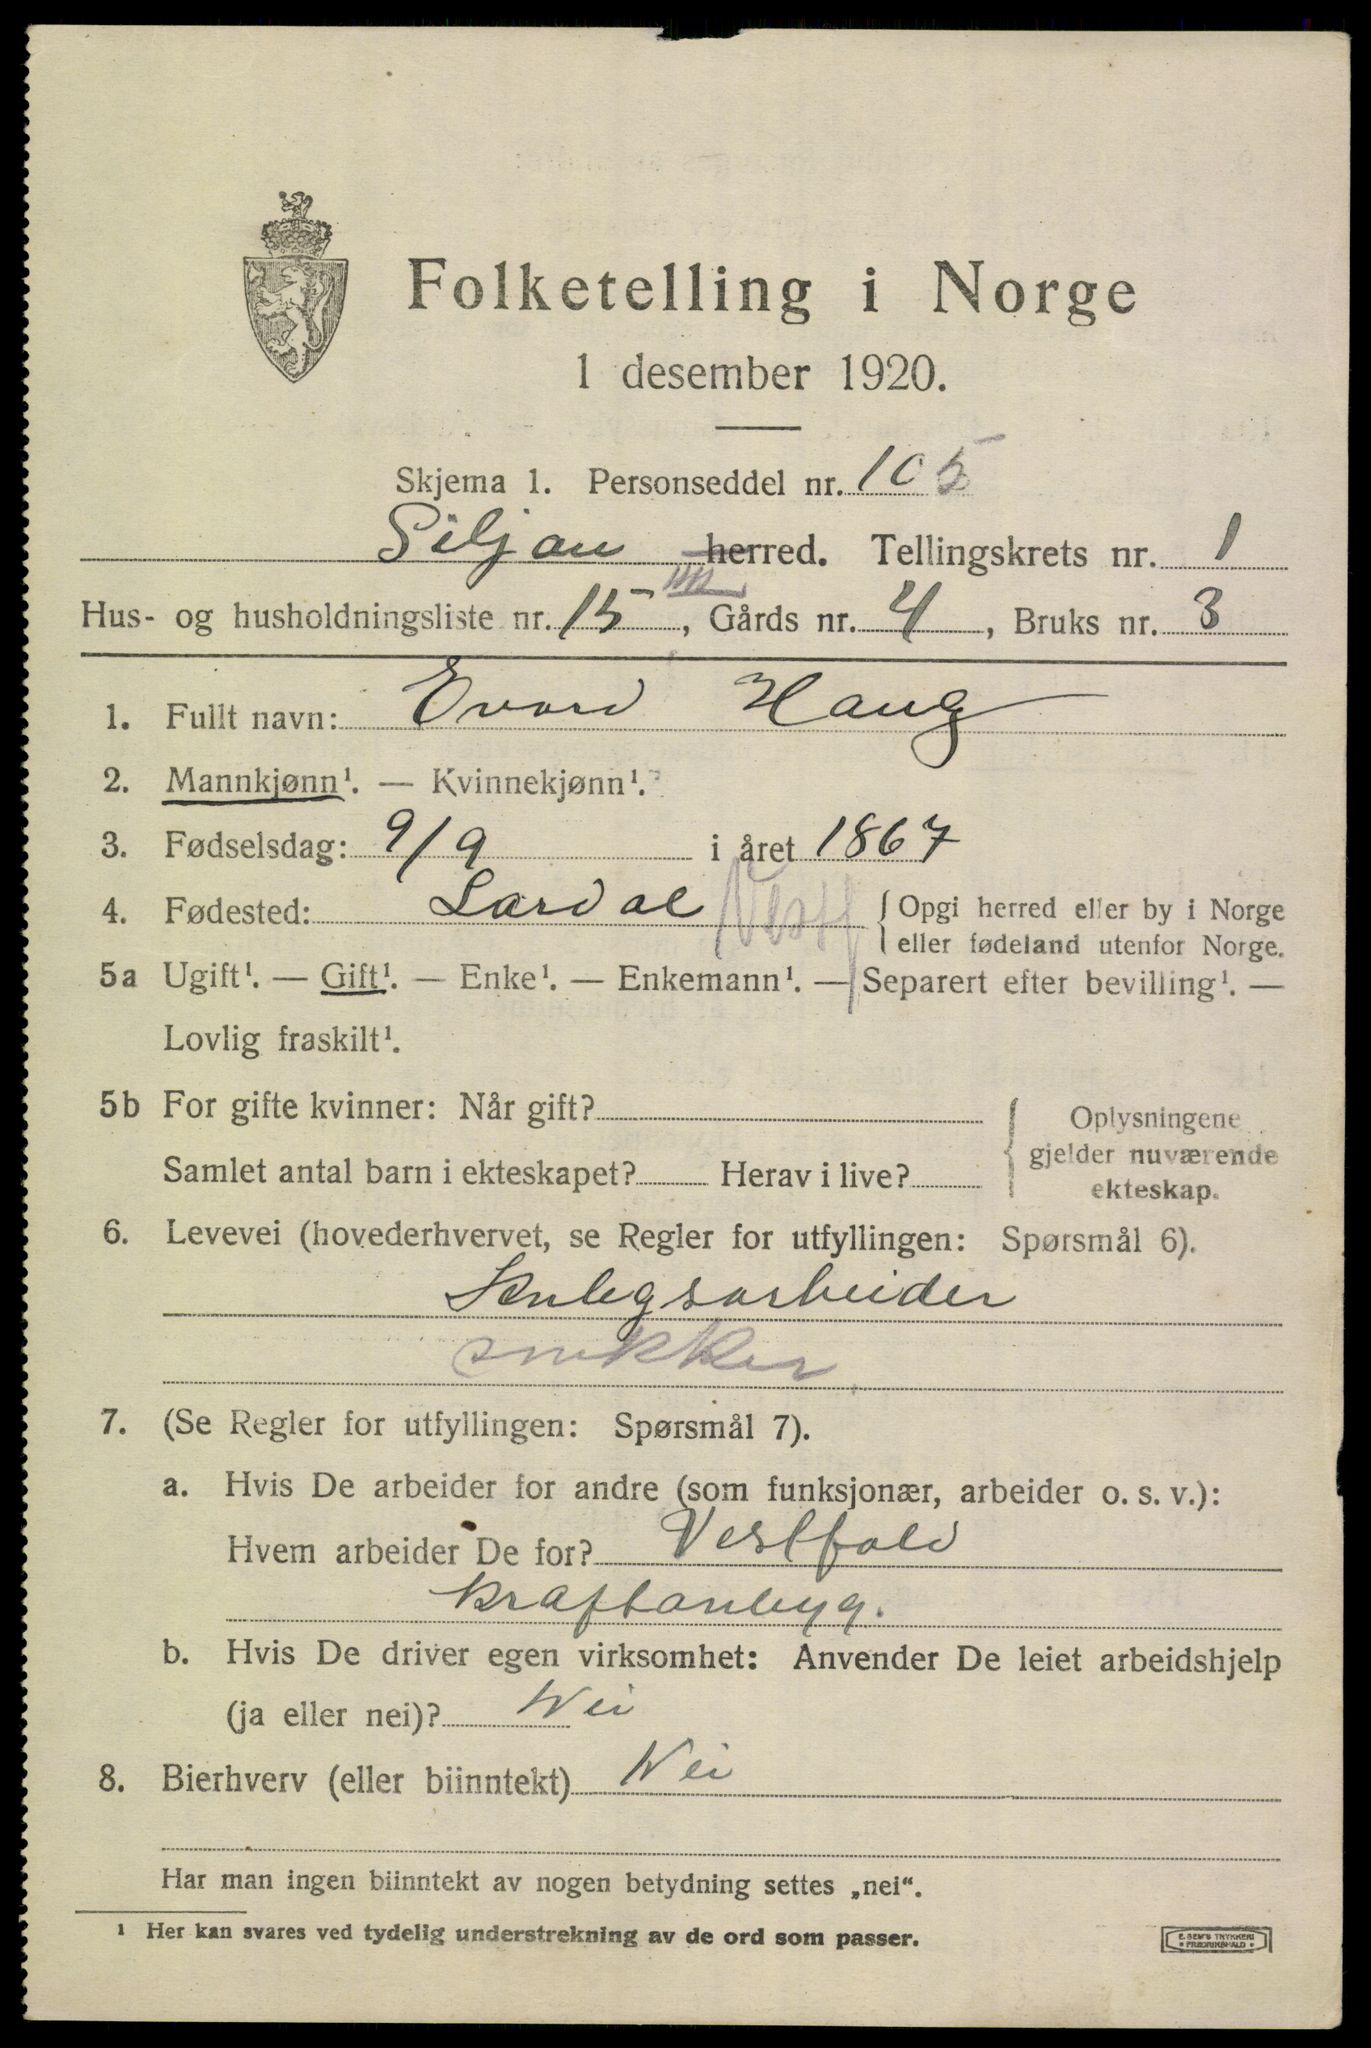 Folketelling i Norge
1 desember 1920.
Skjema 1. Personseddel nr. 105
Siljan herred. Tellingskrets nr. 1
Hus- og husholdningsliste nr. 15, Gårds nr. 4, Bruks nr. 3
1. Fullt navn: Evard Haug
2. Mannkjønn¹. — Kvinnekjønn¹.
3. Fødselsdag: 9/9 i året 1867
4. Fødested: Lardal Vestf { Opgi herred eller by i Norge
eller fødeland utenfor Norge.
5a Ugift¹. — Gift¹. — Enke¹. — Enkemann¹. — Separert efter bevilling¹. —
Lovlig fraskilt¹.
5b For gifte kvinner: Når gift?
Samlet antal barn i ekteskapet? Herav i live?
{ Oplysningene
gjelder nuværende
ekteskap.
6. Levevei (hovederhvervet, se Regler for utfyllingen: Spørsmål 6).
Anlegsarbeider
snekker
7. (Se Regler for utfyllingen: Spørsmål 7).
a. Hvis De arbeider for andre (som funksjonær, arbeider o. s. v.):
Hvem arbeider De for? Vestfold
kraftanlyg.
b. Hvis De driver egen virksomhet: Anvender De leiet arbeidshjelp
(ja eller nei)? Nei
8. Bierhverv (eller biinntekt) Nei
Har man ingen biinntekt av nogen betydning settes „nei“.
¹ Her kan svares ved tydelig understrekning av de ord som passer.
E. SEM'S TRYKKERI
FREDRIKSHALD